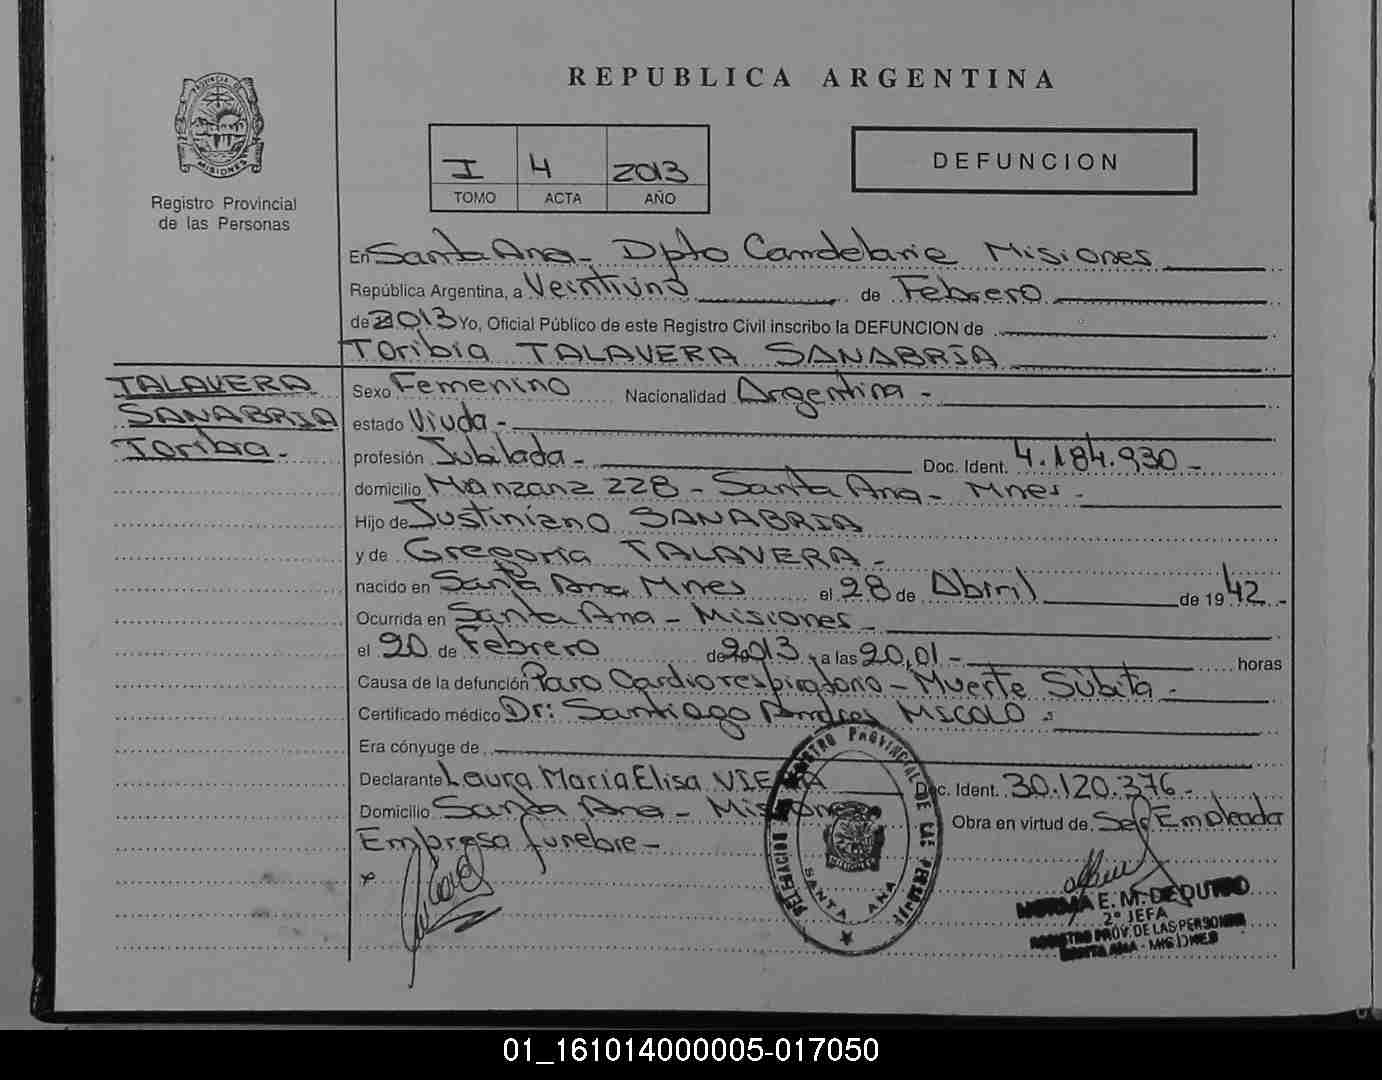 REPUBLICA ARGENTINA
PROVINCIA DE
MISIONES
Registro Provincial
de las Personas
I 4 2013
TOMO ACTA AÑO
DEFUNCION
En Santa Ana - Dpto Candelaria Misiones
República Argentina, a Veintiuno de Febrero
de 2013 Yo, Oficial Público de este Registro Civil inscribo la DEFUNCION de
Toribia TALAVERA SANABRIA
TALAVERA
SANABRIA
Toribia -
Sexo Femenino Nacionalidad Argentina -
estado Viuda -
profesión Jubilada - Doc. Ident. 4.184.930 -
domicilio Manzana 228 - Santa Ana - Mnes -
Hijo de Justiniano SANABRIA
y de Gregoria TALAVERA -
nacido en Santa Ana Mnes el 28 de Abril de 1942 -
Ocurrida en Santa Ana - Misiones -
el 20 de Febrero de 2013 y a las 20,01 - horas
Causa de la defunción Paro Cardiorespiratorio - Muerte Súbita -
Certificado médico Dr: Santiago Andres MICOLO -
Era cónyuge de
Declarante Laura Maria Elisa Doc. Ident. 30.120.376 -
Domicilio Santa Ana - Misiones Obra en virtud de Ser Empleada
Empresa funebre -
REGISTRO PROVINCIAL DE LAS PERSONAS
DELEGACION
SANTA ANA
NORMA E. M. DE
2° JEFA
REGISTRO PROV. DE LAS PERSONAS
SANTA ANA - MISIONES
01_161014000005-017050